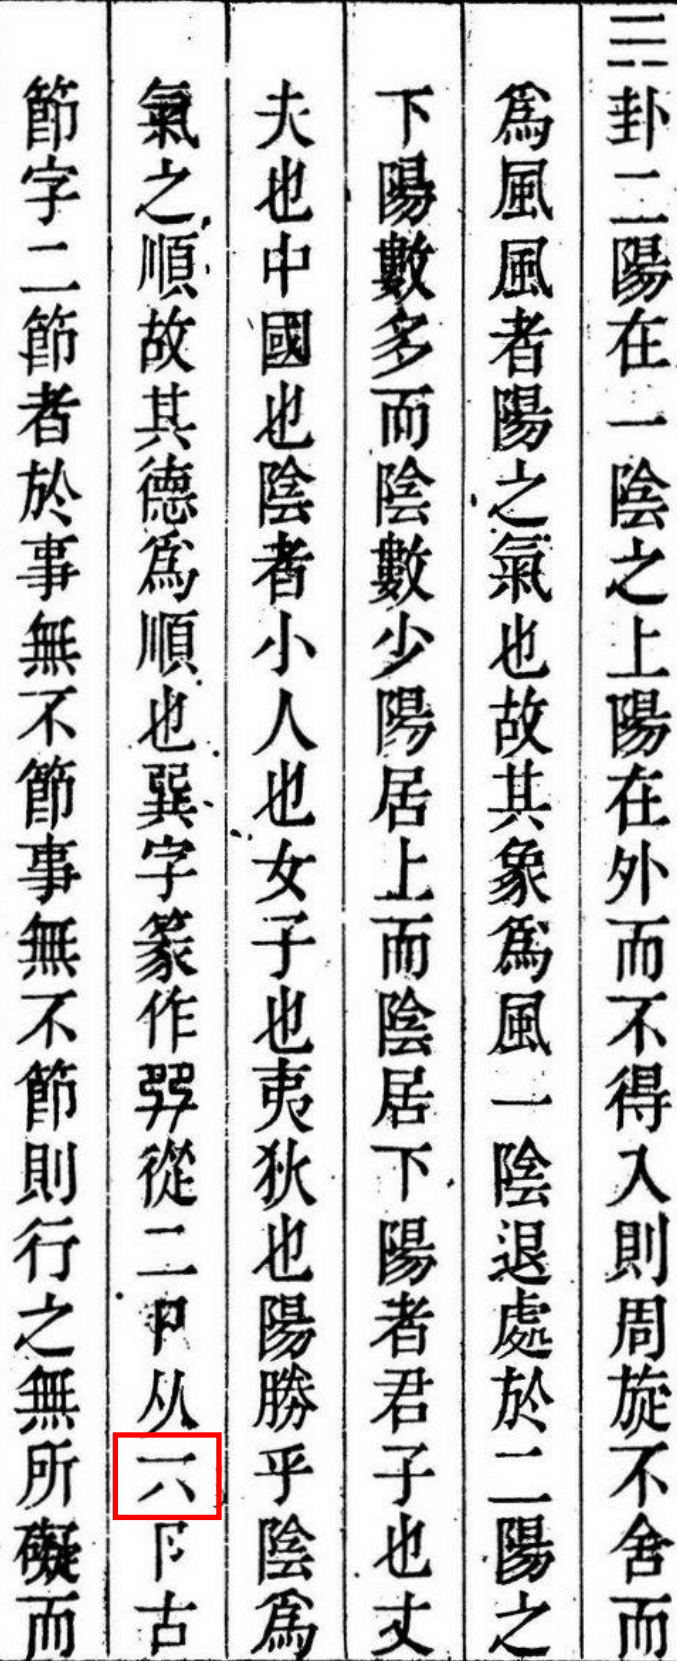 ☴卦二陽在一陰之上陽在外而不得入則周旋不舍而
爲風風者陽之氣也故其象爲風一陰退處於二陽之
下陽數多而陰數少陽居上而陰居下陽者君子也丈
夫也中國也陰者小人也女子也夷狄也陽勝乎陰爲
氣之順故其德爲順也巺字篆作㢲從二卪从丌卪古
節字二節者於事無不節事無不節則行之無所礙而